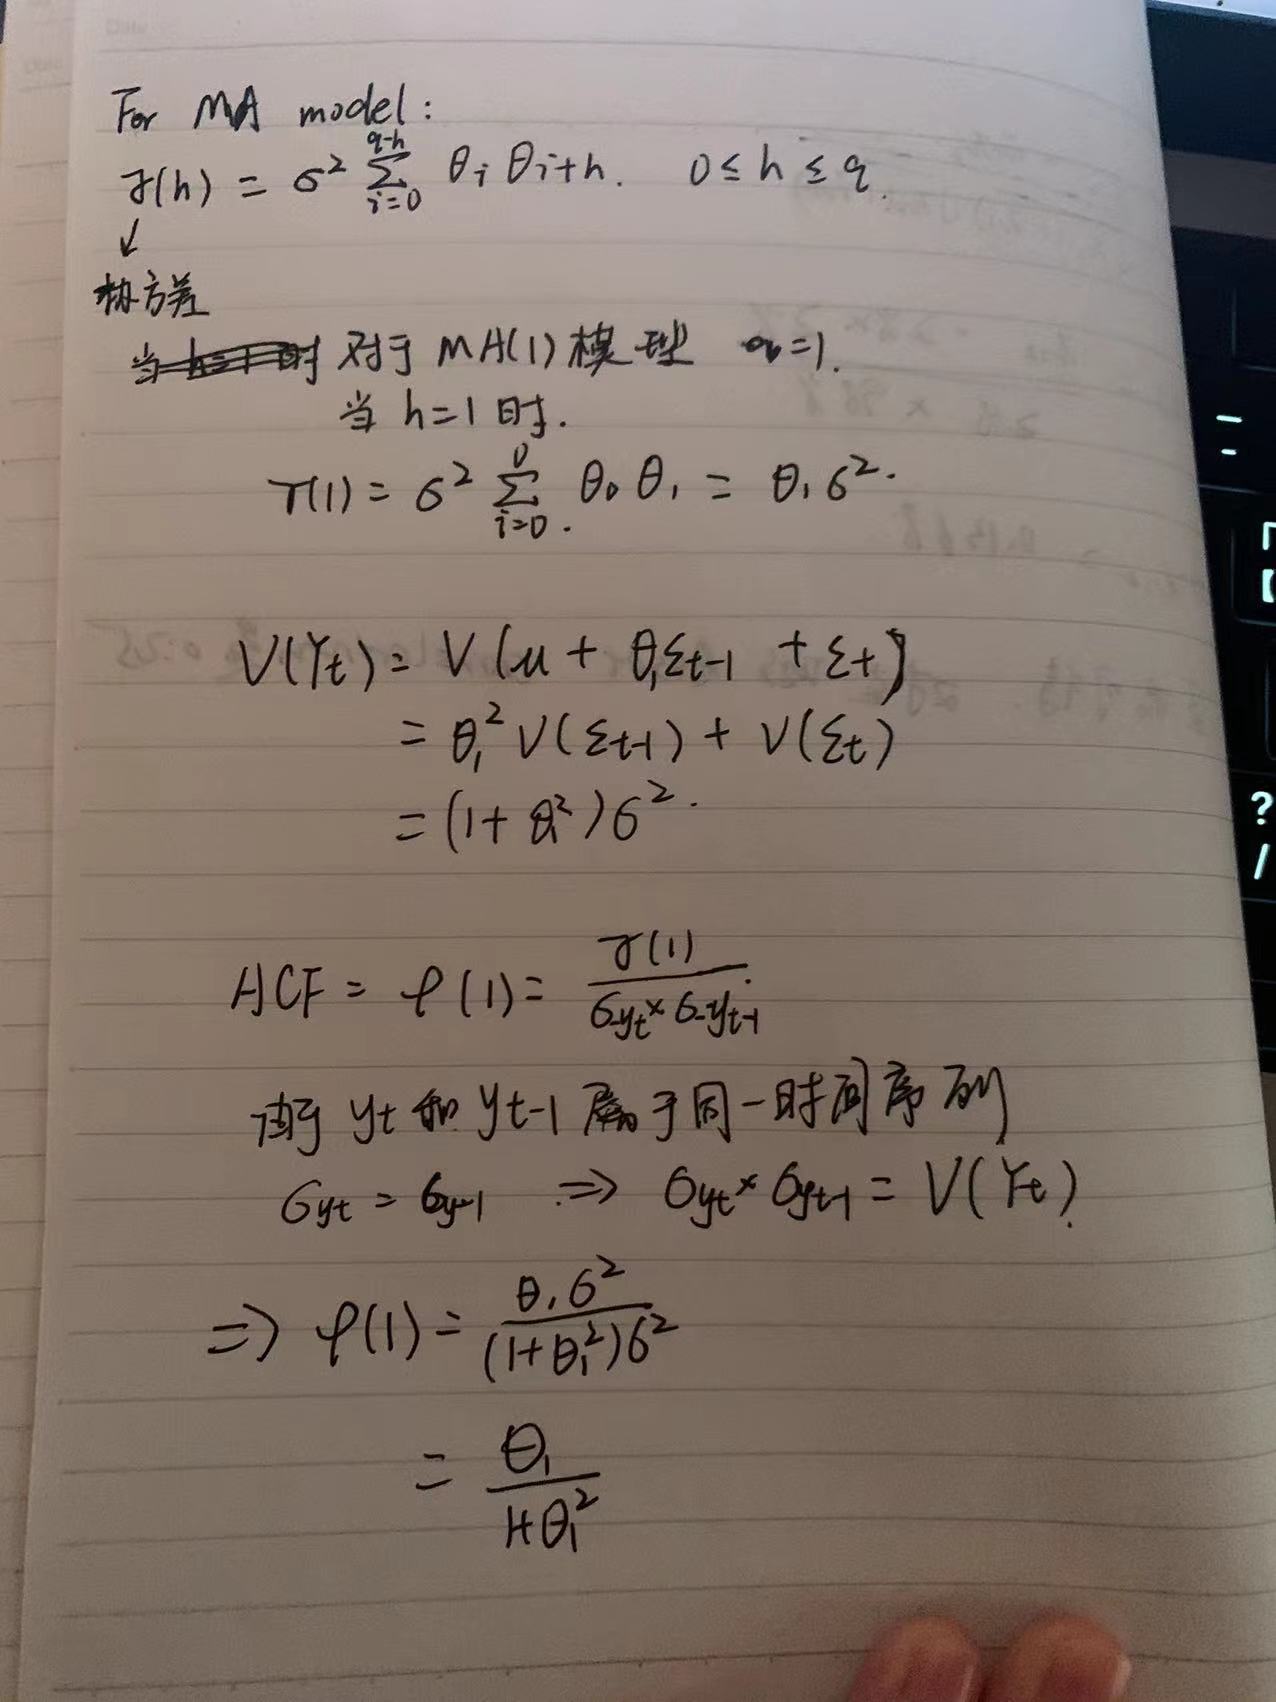 For MA model:
γ(h) = σ² Σ_{i=0}^{q-h} θi θi+h. 0 ≤ h ≤ q.
↓
协方差
对于 MA(1) 模型 q=1.
当 h=1 时.
γ(1) = σ² Σ_{i=0}^{0} θ₀ θ₁ = θ₁σ².
V(Yt) = V(μ + θ₁εt-1 + εt)
= θ₁² V(εt-1) + V(εt)
= (1+θ₁²)σ².
ACF = ρ(1) = γ(1) / σyt × σyt-1
由于 yt 和 yt-1 属于同一时间序列
σyt = σyt-1 ⇒ σyt × σyt-1 = V(Yt).
⇒ ρ(1) = θ₁σ² / (1+θ₁²)σ²
= θ₁ / 1+θ₁²
?
/